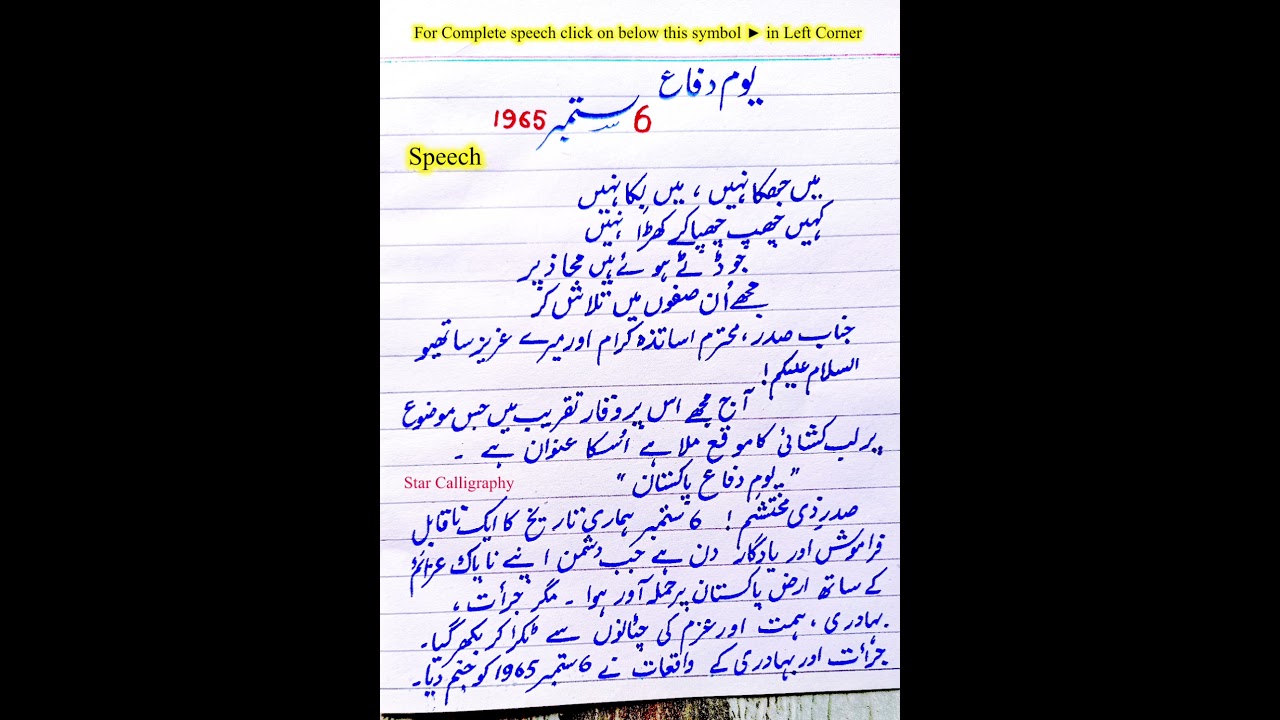 For Complete speech click on below this symbol ► in Left Corner
یوم دفاع
6 ستمبر 1965
Speech
میں جھکا نہیں ، میں بکا نہیں
کہیں چھپ چھپا کے کھڑا نہیں
جو ڈٹے ہوئے ہیں محاذ پر
مجھے اُن صفوں میں تلاش کر
جناب صدر، محترم اساتذہ کرام اور میرے عزیز ساتھیو
السلام علیکم!
آج مجھے اس پروقار تقریب میں جس موضوع
پر لب کشائی کا موقع ملا ہے اُسکا عنوان ہے ۔
"یوم دفاع پاکستان"
Star Calligraphy
صدرِ ذی محتشم! 6 ستمبر ہماری تاریخ کا ایک ناقابل
فراموش اور یادگار دن ہے جب دشمن اپنے ناپاک عزائم
کے ساتھ ارض پاکستان پر حملہ آور ہوا ۔ مگر جرأت ،
بہادری ، ہمت اور عزم کی چٹانوں سے ٹکرا کر بکھر گیا۔
جرأت اور بہادری کے واقعات نے 6 ستمبر 1965 کو جنم دیا۔